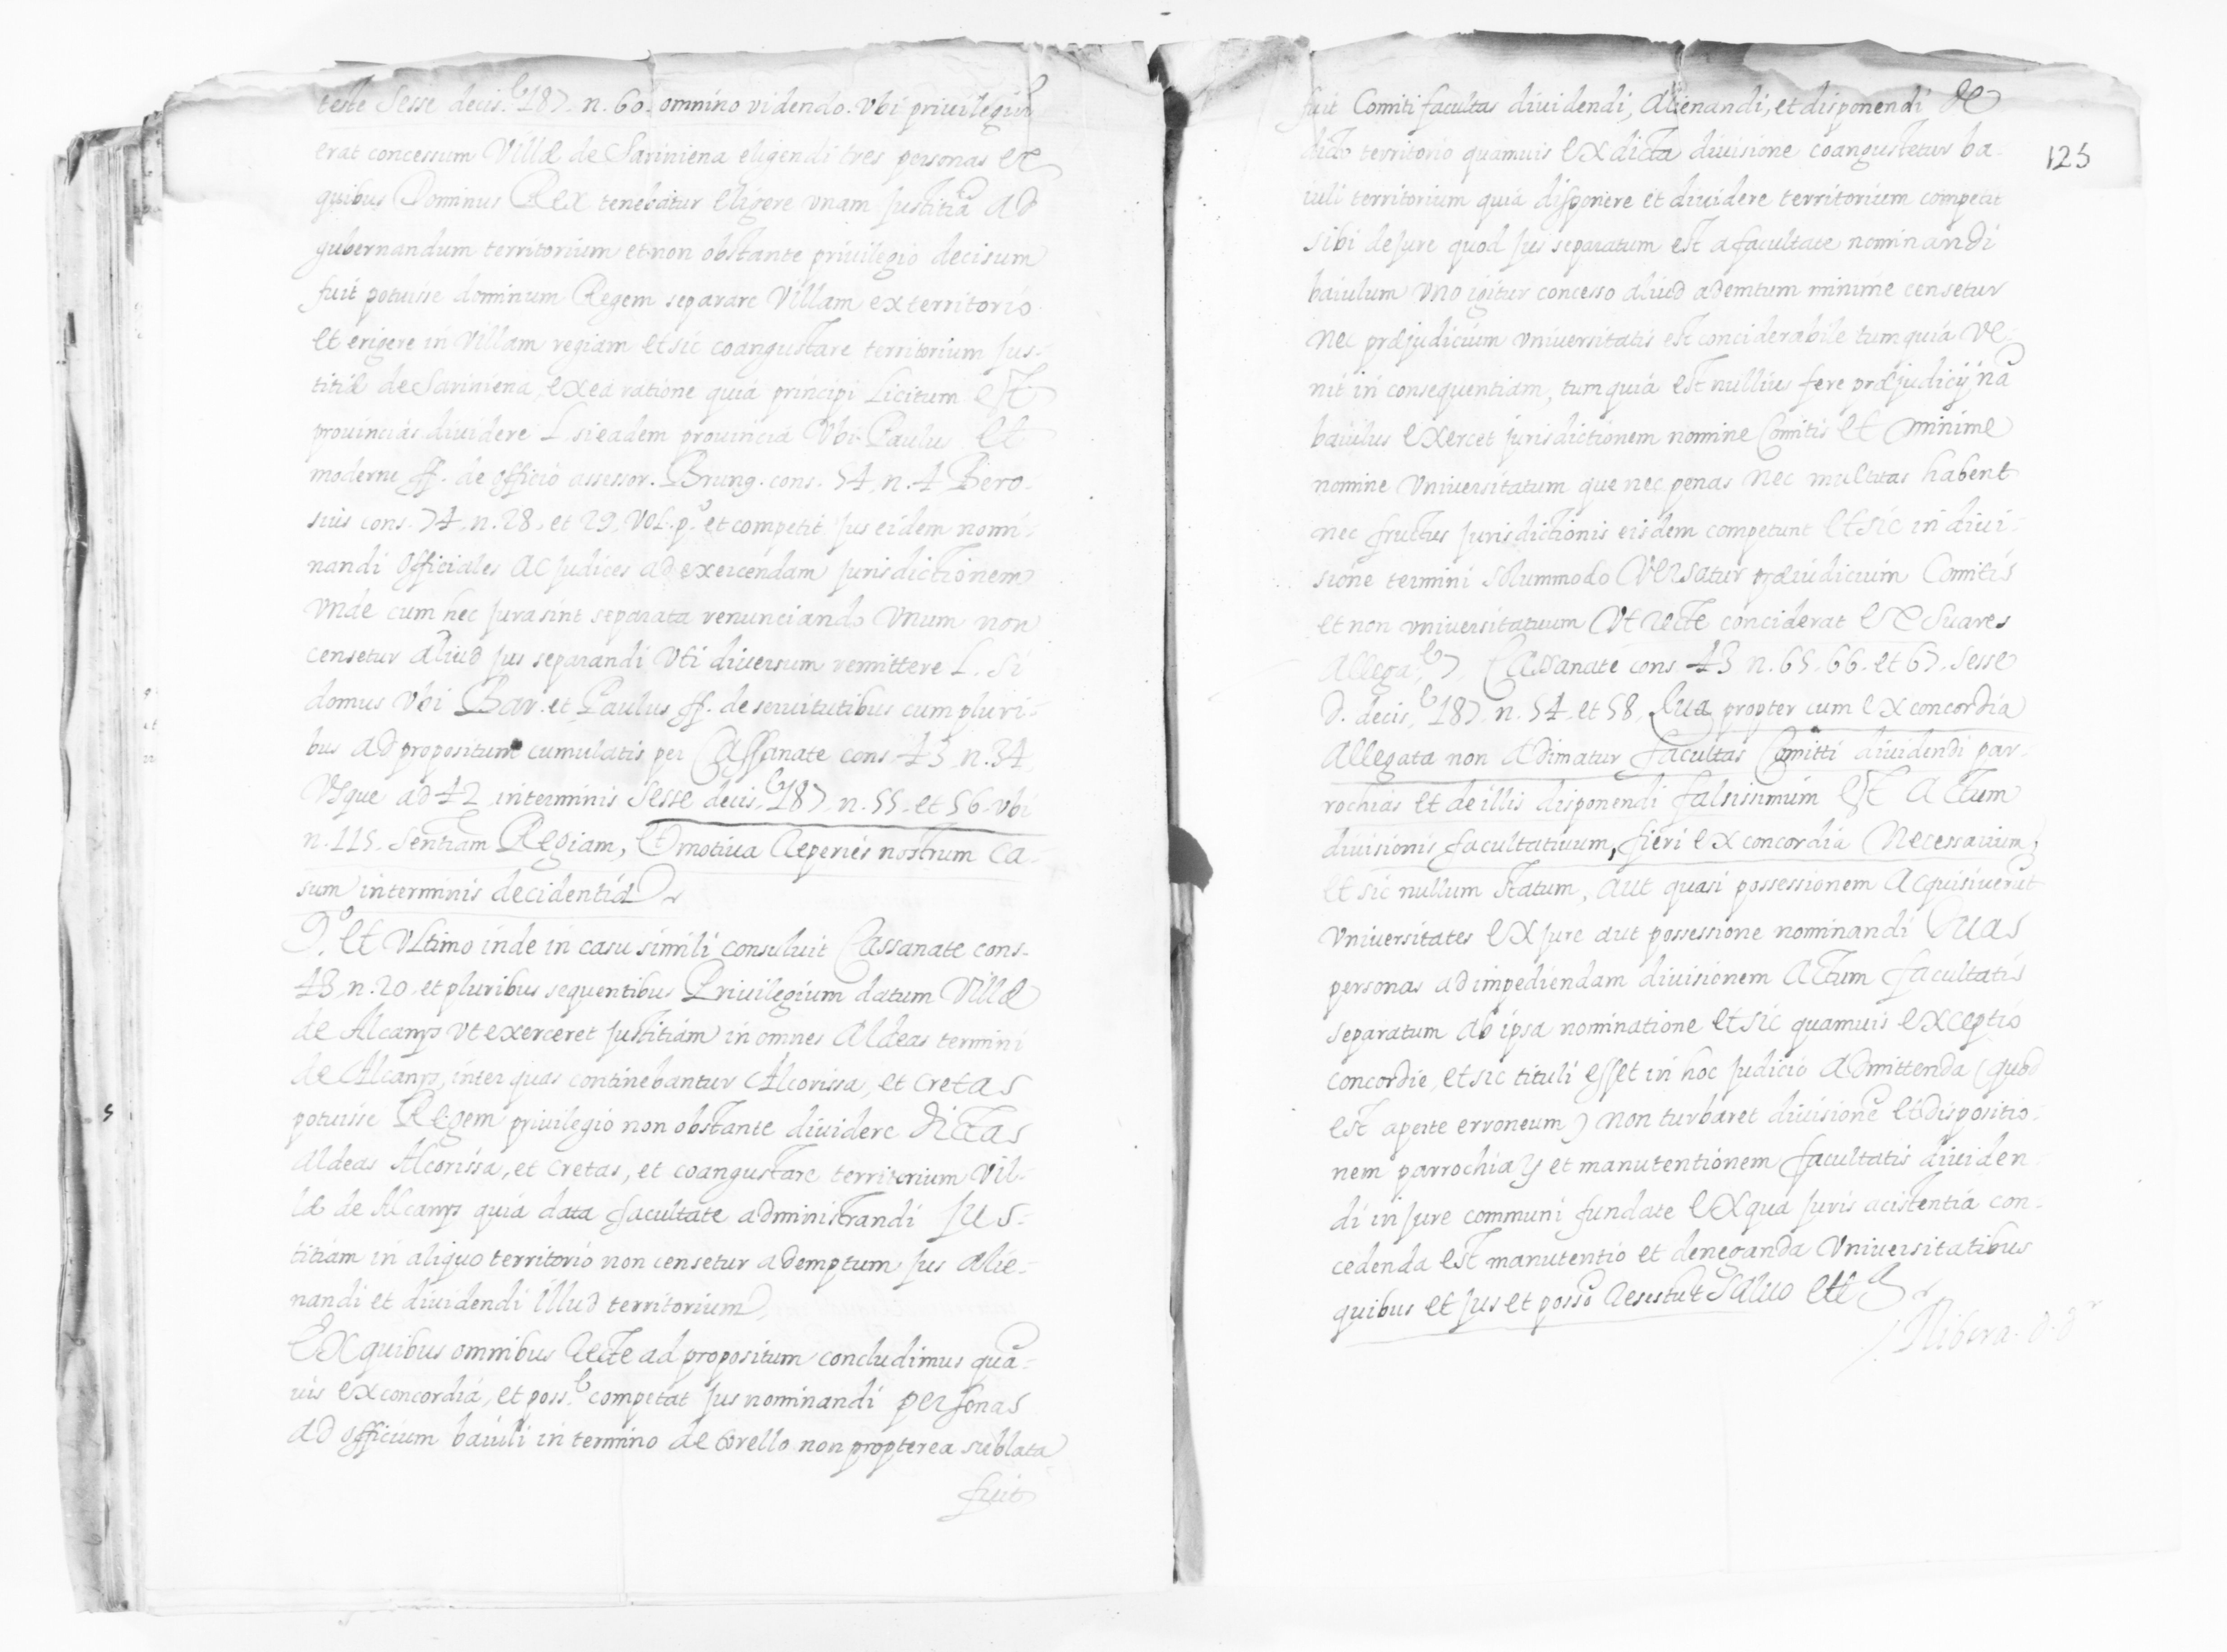 teste Sesse decis. 187. n. 60. omnino videndo. Vbi priuilegiũ
erat concessum Villæ de Sariniena eligendi tres personas ex
quibus Dominus Rex tenebatur eligere vnam Justitiã ad
gubernandum territorium et non obstante priuilegio decisum
fuit potuisse dominum Regem separare Villam ex territorio
et erigere in Villam regiam et sic coangustare territorium Jus-
titiæ de Sariniena, ex ea ratione quia principi Licitum est
prouincias diuidere L. si eadem prouincia Vbi Paulu et
moderni ff. de officio assessor. Brung. cons. 54. n. 4 Bero-
sius cons. 74. n. 28. et 29. Vol. pº. et competit Jus eidem nomi-
nandi officiales ac Judices ad exercendam Jurisdictionem
Vnde cum hec Jura sint separata renunciando Vnum non
censetur aliud Jus separandi Vti diuersum remittere L. Si
domus Vbi Bar. et Paulus ff. de seruitutibus cum pluri-
bus ad propositum cumulatis per Cassanate cons. 43. n. 34
Vsque ad 42 in terminis Sesse decis. 187. n. 55. et 56. Vbi
n. 115. Sentiam Regiam, et motiua Reperies nostrum ca-
sum in terminis decidentia
9º. et Vltimo inde in casu simili consuluit Cassanate cons.
43. n. 20. et pluribus sequentibus Priuilegium datum Villæ
de Alcanys Vt exerceret Justitiam in omnes Aldeas termini
de Alcanys, inter quas continebantur Alcorissa, et Cretas
potuisse Regem priuilegio non obstante diuidere dictas
aldeas Alcorissa, et Cretas, et coangustare territorium Vil-
læ de Alcanys quia data facultate administrandi Jus-
titiam in aliquo territorio non censetur ademptum Jus alie-
nandi et diuidendi illud territorium.
Ex quibus omnibus Recte ad propositum concludimus quã-
uis ex concordia, et poss. competat Jus nominandi personas
ad officium baiuli in termino de Corello non propterea sublata
fuit
125
fuit Comiti facultas diuidendi, Alienandi, et disponendi de
dicto territorio quamuis ex dicta diuisione coangustetur ba-
iuli territorium quia disponere et diuidere territorium competat
sibi de Jure quod Jus separatum est a facultate nominandi
baiulum Vno igitur concesso aliud ademtum minime censetur
nec præjudicium Vniuersitatis est conciderabile tum quia ve-
nit in consequentiam, tum quia est nullius fere præjudicij, nã
baiulus exercet Jurisdictionem nomine Comitis et minime
nomine Vniuersitatum que nec penas nec multtas habent
nec fructus Jurisdictionis eisdem competunt et sic in diui-
sione termini solummodo versatur præiudicium Comitis
et non vniuersitatuum Vt recte conciderat ex Suares
Allega. 7. Cassanate cons 43 n. 65. 66. et 67. Sesse
d. decis. 187. n. 54. et 58. Qua propter cum ex concordia
Allegata non adimatur facultas Comitti diuidendi par-
rochias et de illis disponendi falsissimum est actum
diuisionis facultatiuum, fieri ex concordia Necessarium,
et sic nullum statum, aut quasi possessionem acquisiuerũt
Vniuersitates ex Jure aut possessione nominandi duas
personas ad impediendam diuisionem actum facultatis
separatum ab ipsa nominatione et sic quamuis exceptio
concordie, et sic tituli esset in hoc Judicio admittenda (quod
est aperte erroneum) non turbaret diuisionẽ et dispositio-
nem parrochiaȝ et manutentionem facultatis diuiden-
di in Jure communi fundate ex qua Juris acistentia con-
cedenda est manutentio et deneganda Vniuersitatibus
quibus et Jus et posso Resistut Saluo ettª
Ribera. d. dr